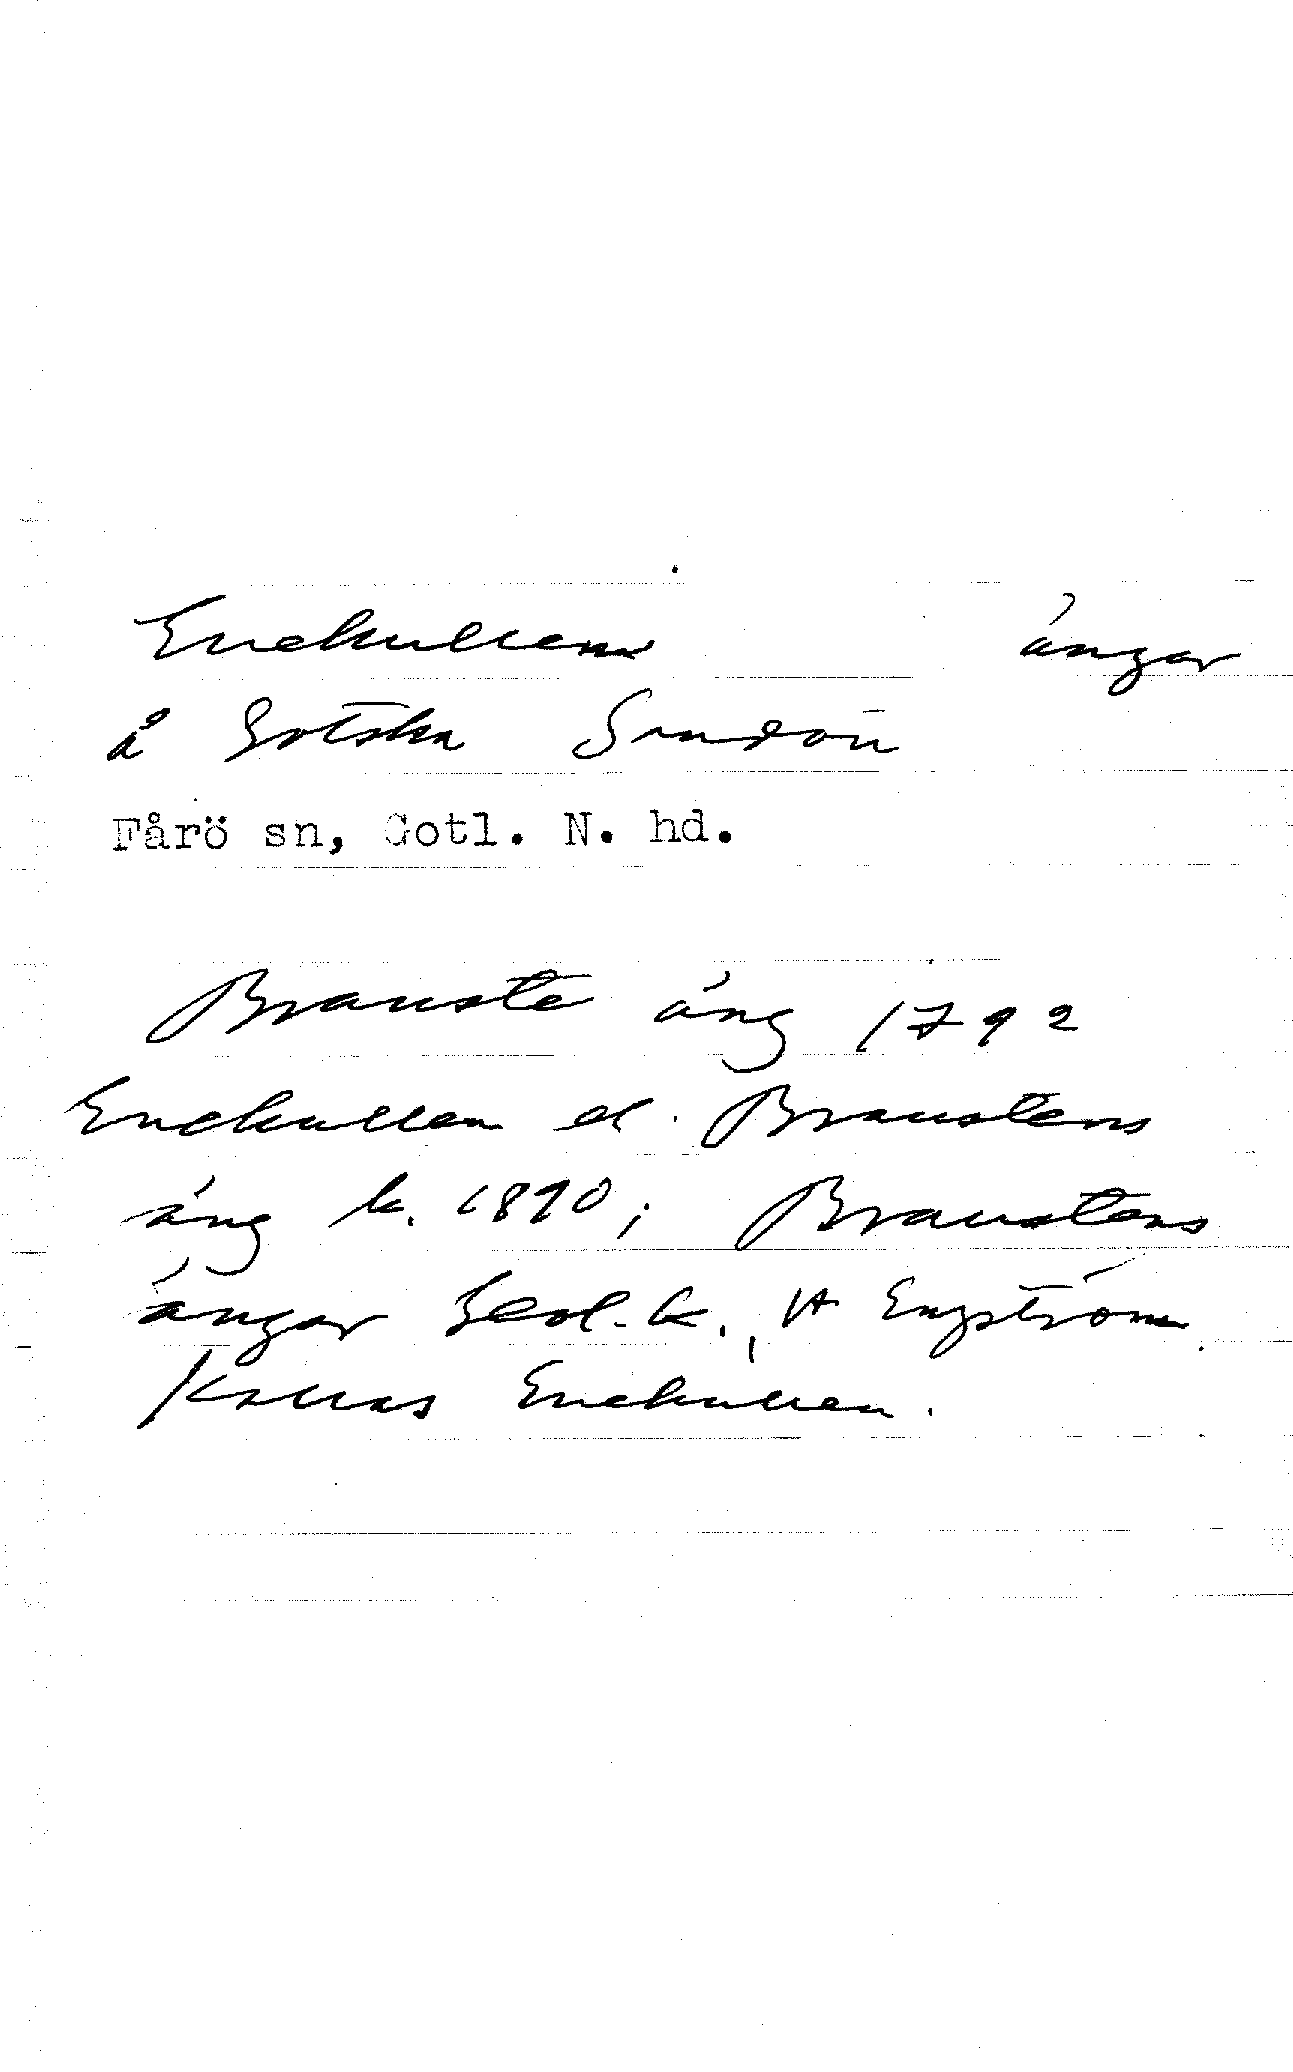 Enekullen ängar
å Gotska Sandön
Fårö sn, Gotl. N. hd.
Brauste äng 1792
Enekullen el. Braustens
äng k. 1890; Braustens
ängar Geol. k., A Engström
Kallas Enekullen.